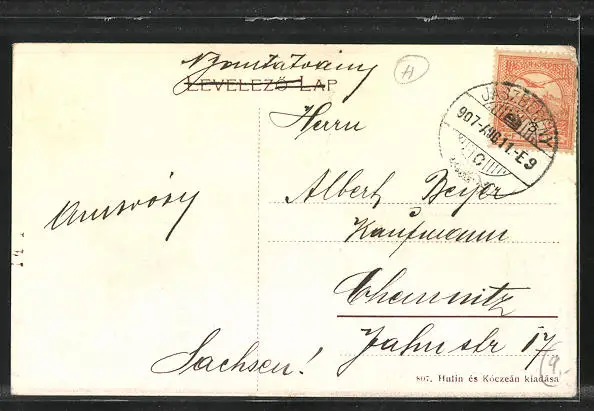 Nyomtatvány
LEVELEZŐ-LAP
H
Herrn
907 AUG 11.-E9
C
Albert Beyer
Kaufmann
Chemnitz
Jahnstr 17
Sachsen!
4,-
807. Hutin és Kóczeán kiadása